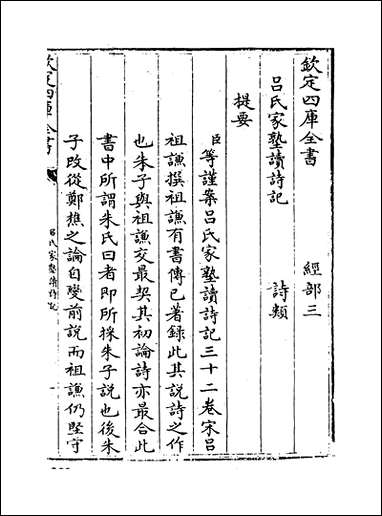 欽定四庫全書　經部三
呂氏家塾讀詩記　詩類
提要
臣等謹案呂氏家塾讀詩記三十二卷宋呂
祖謙撰祖謙有書傳已著録此其說詩之作
也朱子與祖謙交最契其初論詩亦最合此
書中所謂朱氏曰者即所採朱子說也後朱
子改從鄭樵之論自變前說而祖謙仍堅守
欽定四庫全書
呂氏家塾讀詩記